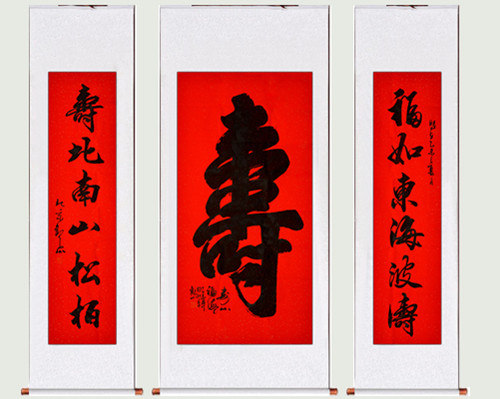 福如東海波濤
壽
壽北南山松柏